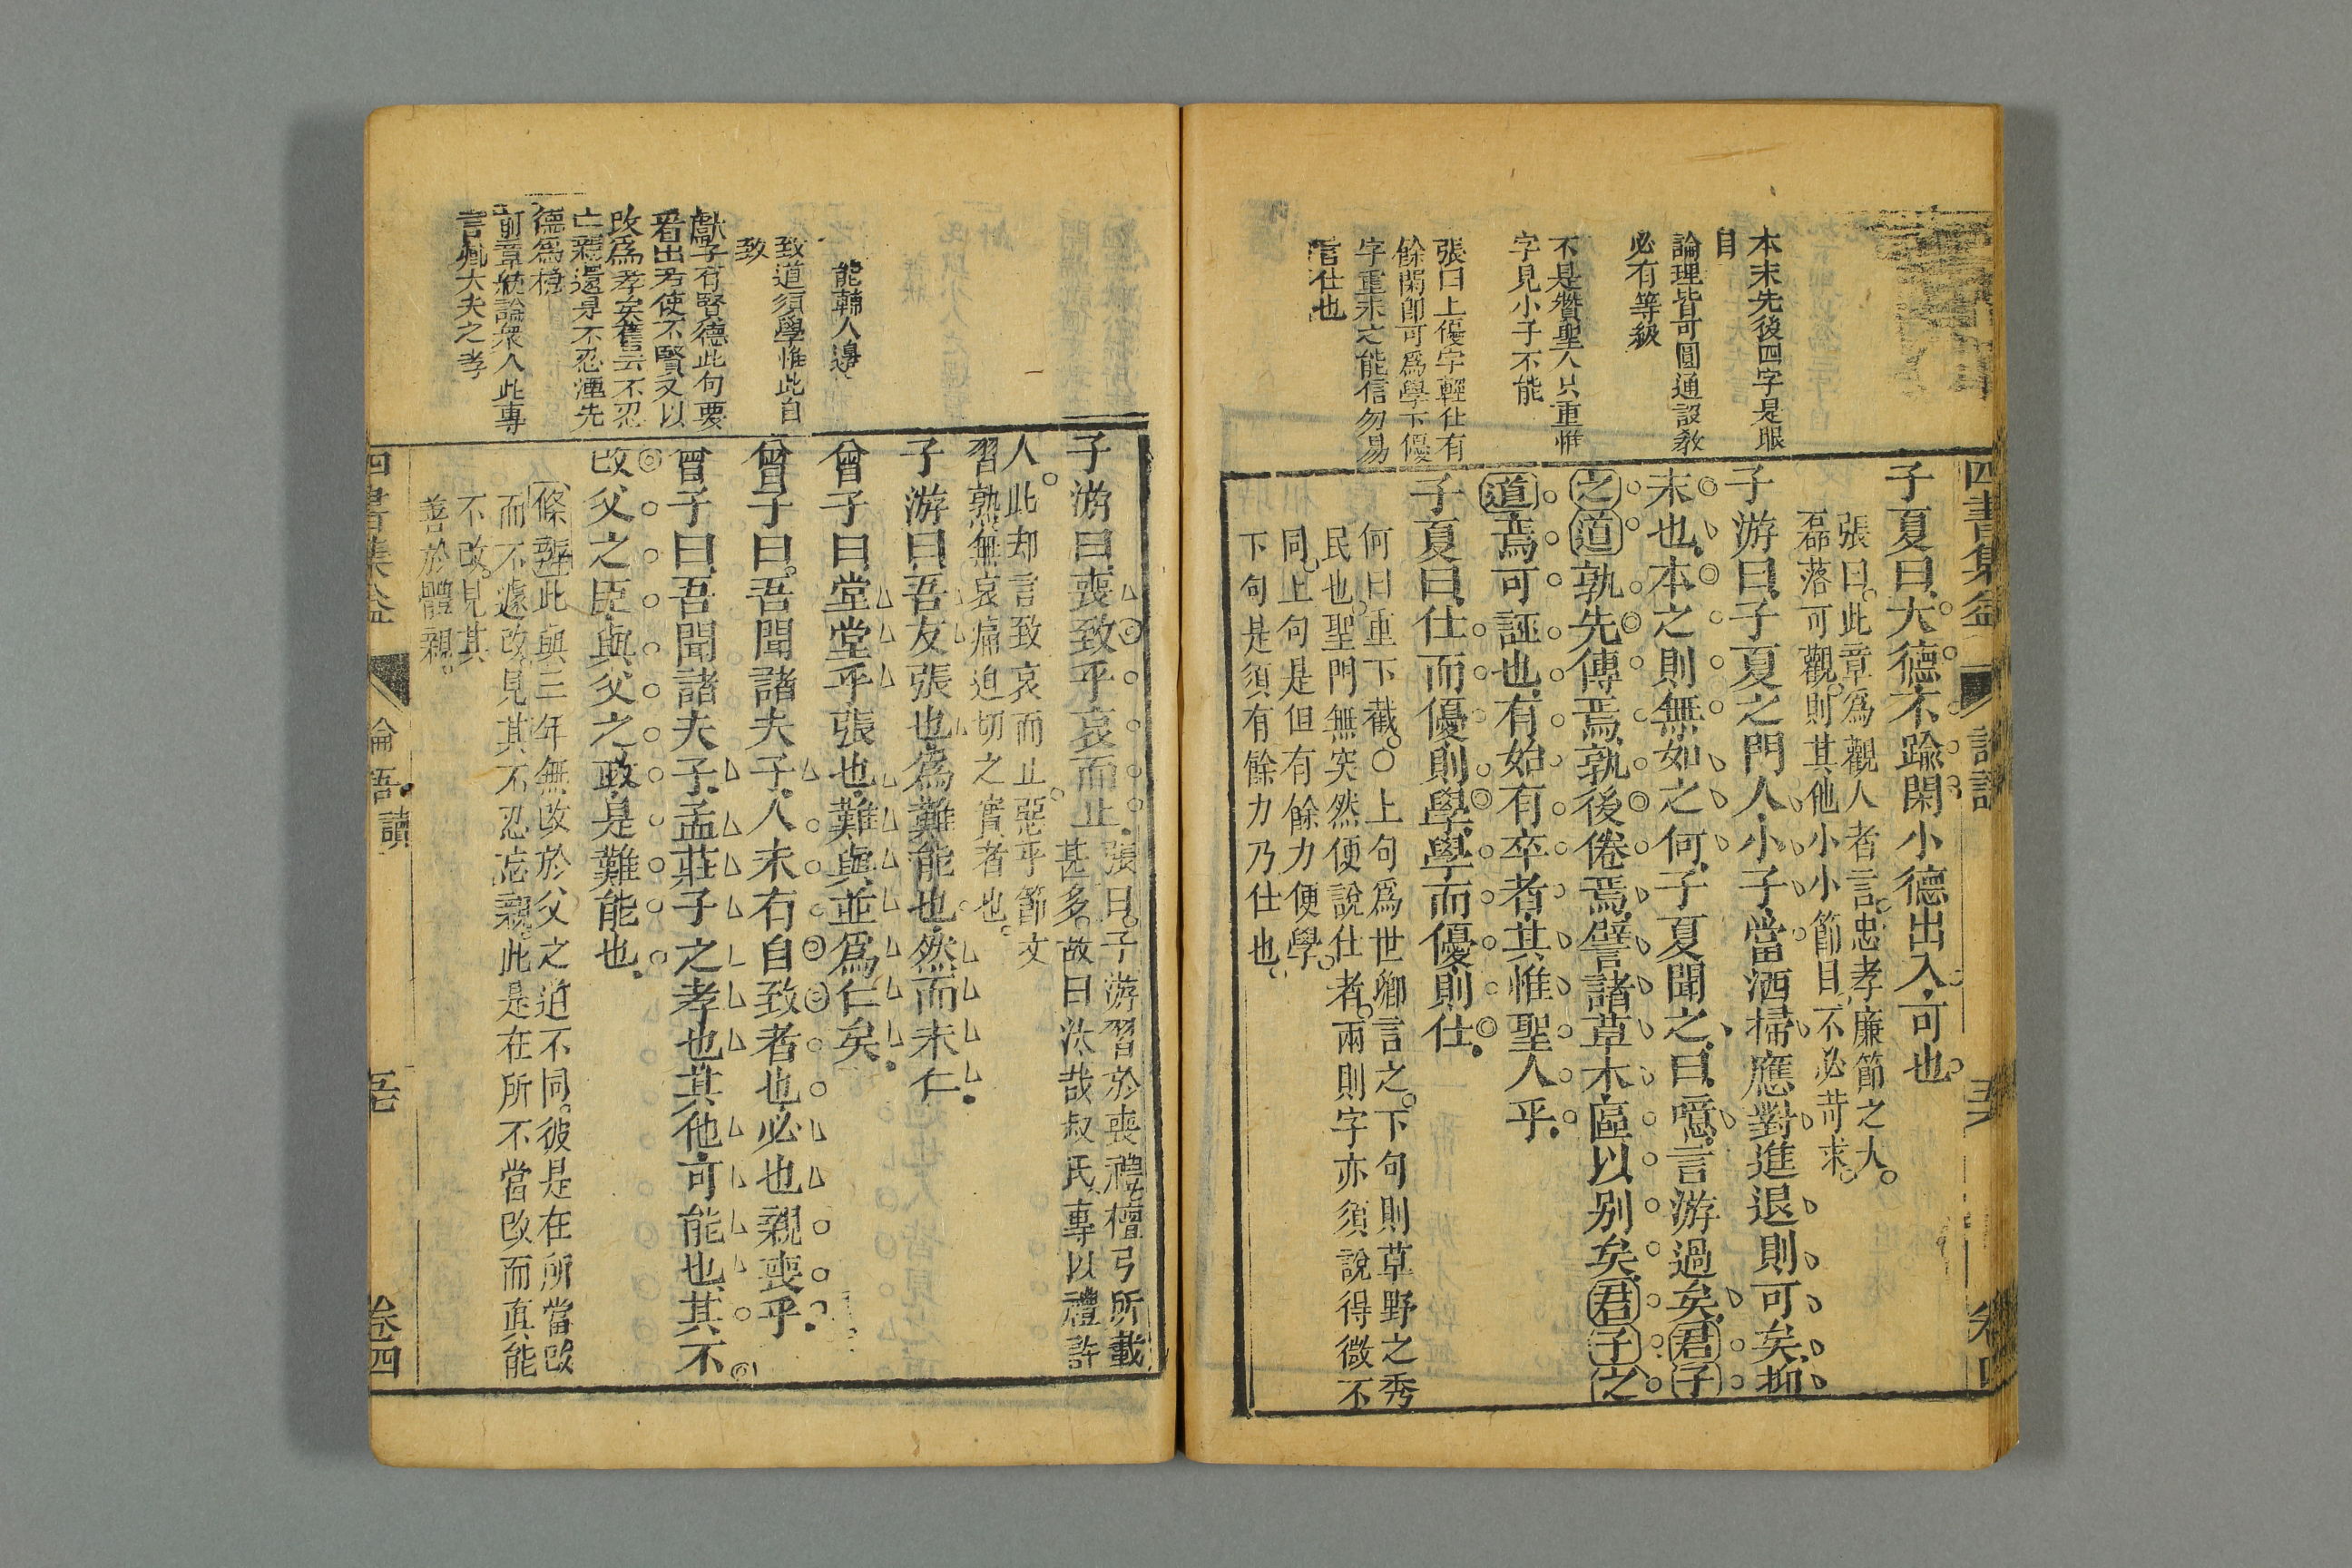 四書集益
論語讀
卷四
本末先後四字是眼
目
論理皆可圓通設教
必有等級
不是贊聖人只重惟
字見小子不能
張曰上優字輕仕有
餘閑卽可爲學下優
字重未之能信勿易
言仕也
子夏曰大德不踰閑小德出入可也
張曰此章爲觀人者言忠孝廉節之大
磊落可觀則其他小小節目不必苛求
子游曰子夏之門人小子當洒掃應對進退則可矣抑
末也本之則無如之何子夏聞之曰噫言游過矣君子
之道孰先傳焉孰後倦焉譬諸草木區以別矣君子之
道焉可誣也有始有卒者其惟聖人乎
子夏曰仕而優則學學而優則仕
何曰重下截○上句爲世卿言之下句則草野之秀
民也聖門無突然便說仕者兩則字亦須說得微不
同上句是但有餘力便學
下句是須有餘力乃仕也
能輔人邊
致道須學惟此自
致
獻子有賢德此句要
看出若使不賢又以
改爲孝矣舊云不忍
亡親還是不忍湮先
德爲穩
前章統論衆人此專
言卿大夫之孝
子游曰喪致乎哀而止張曰子游習於喪禮檀弓所載
甚多故曰汰哉叔氏專以禮許
人此却言致哀而止惡乎節文
習熟無哀痛迫切之實者也
子游曰吾友張也爲難能也然而未仁
曾子曰堂堂乎張也難與並爲仁矣
曾子曰吾聞諸夫子人未有自致者也必也親喪乎
曾子曰吾聞諸夫子孟莊子之孝也其他可能也其不
改父之臣與父之政是難能也
條辨此與三年無改於父之道不同彼是在所當改
而不遽改見其不忍忘親此是在所不當改而眞能
不改見其
善於體親
四書集益
論語讀
卷四